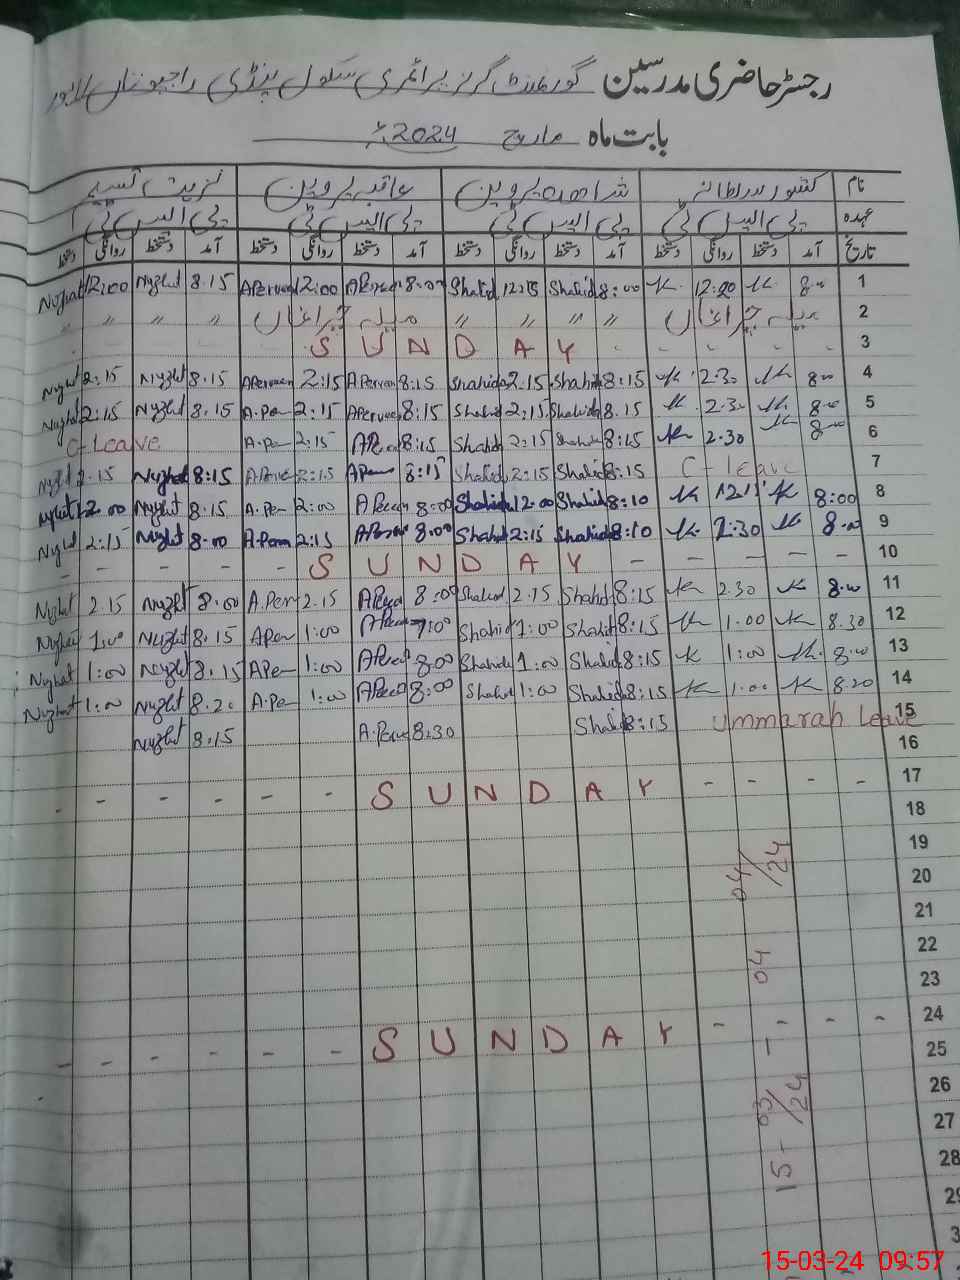 رجسٹر حاضری مدرسین گورنمنٹ گرلز پرائمری سکول پنڈی راجپوتاں لاہور
بابت ماہ مارچ 2024ء
نام کشور سلطانہ شاہدہ پروین عاقبہ پروین نزہت نسیم
عہدہ پی ایس ٹی پی ایس ٹی پی ایس ٹی پی ایس ٹی
تاریخ آمد دستخط روانگی دستخط آمد دستخط روانگی دستخط آمد دستخط روانگی دستخط آمد دستخط روانگی دستخط
Nyzhat 12:00 Nyzhat 8.15 A Perveen 12:00 A Perveen 8:00 Shahid 12:15 Shahid 8:00 K 12.20 K 8.00 1
" " " " میلہ چراغاں " " " " میلہ چراغاں 2
S U N D A Y 3
Nyzhat 2:15 Nyzhat 8.15 A Perveen 2:15 A Perveen 8:15 Shahida 2.15 Shahida 8:15 K 2.30 K 8.00 4
Nyzhat 2:15 Nyzhat 8.15 A.Per 2:15 A Perveen 8:15 Shahid 2:15 Shahida 8.15 K 2.30 K 8.00 5
C-Leave A.Per 2:15 A Per 8:15 Shahid 2:15 Shahida 8:15 K 2.30 K 8.00 6
Nyzhat 2.15 Nyzhat 8:15 A Perve 2:15 A Perv 8:15 Shahid 2:15 Shahid 8.15 C-leave 7
Nyzhat 12.00 Nyzhat 8.15 A.Per 2:00 A Perveen 8:00 Shahida 12:00 Shahid 8:10 K 12.15 K 8:00 8
Nyzhat 2:15 Nyzhat 8.00 A.Perv 2:15 A Perve 8.00 Shahid 2:15 Shahid 8:10 K 2:30 K 8.00 9
- - - - - S U N D A Y - - - - - 10
Nyzhat 2.15 Nyzhat 8.00 A.Per 2.15 A Perve 8:00 Shahid 2.15 Shahid 8:15 K 2.30 K 8.00 11
Nyzhat 1.00 Nyzhat 8.15 A Per 1:00 A Perve 7:00 Shahid 1:00 Shahid 8:15 K 1.00 K 8.30 12
Nyzhat 1:00 Nyzhat 8.15 A Per 1:00 A Perve 8:00 Shahid 1:00 Shahid 8:15 K 1:00 K 8.00 13
Nyzhat 1:00 Nyzhat 8.20 A.Pe 1:00 A Perve 8:00 Shahid 1:00 Shahid 8:15 K 1.00 K 8.20 14
Nyzhat 8:15 A.Perve 8:30 Shahid 8:15 Ummarah Leave 15
16
- - - - - - S U N D A Y - - - - 17
18
19
20
21
22
23
- - - - - - S U N D A Y - - - - 24
25
26
27
28
29
3
15-03/24 - 04 04/24
15-03-24 09:57